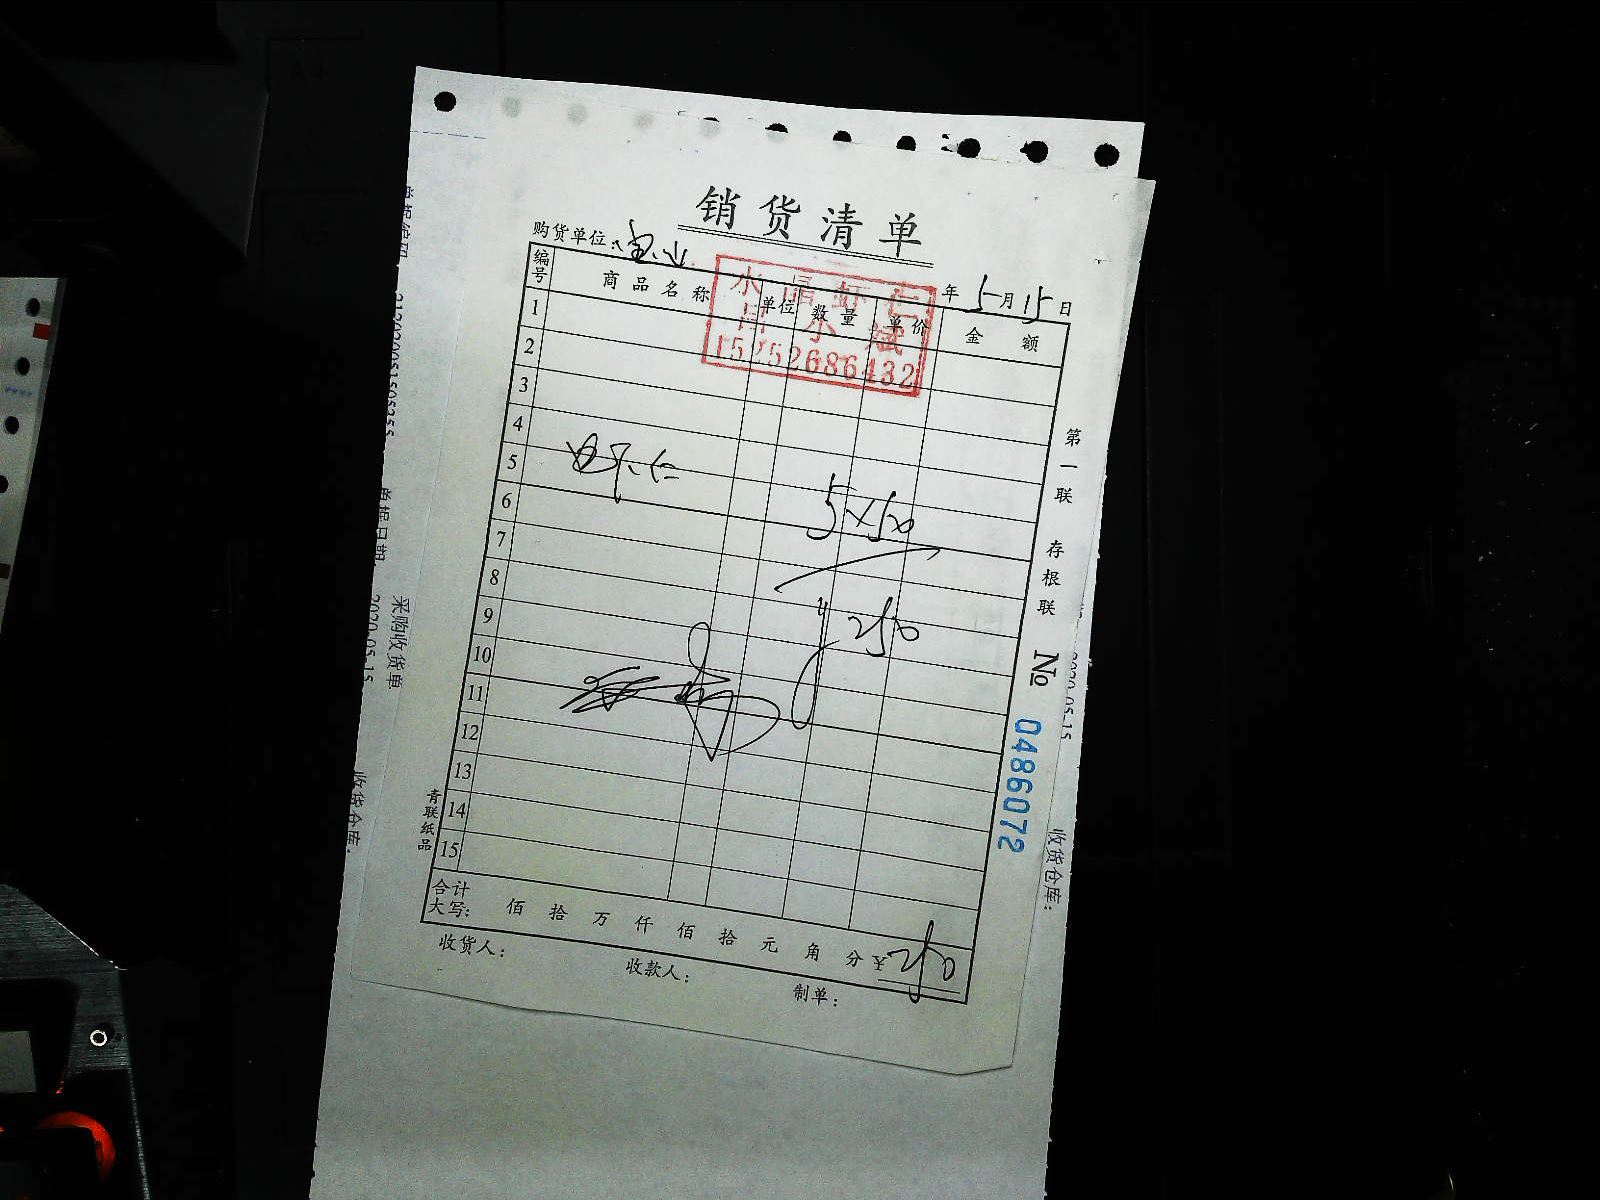 销货清单
购货单位：
年 5月15日
编号 商品名称 单位 数量 单价 金额
水晶虾仁
15252686432
1
2
3
4
5 虾仁 5×50
6
7
8
9 250
10
11
12
13
14
15
合计
大写： 佰 拾 万 仟 佰 拾 元 角 分 ¥250
收货人： 收款人： 制单：
第一联 存根联 № 0486072
青联纸品
采购收货单
单据日期 2020-05-15
收货仓库：
2020-05-15
收货仓库：